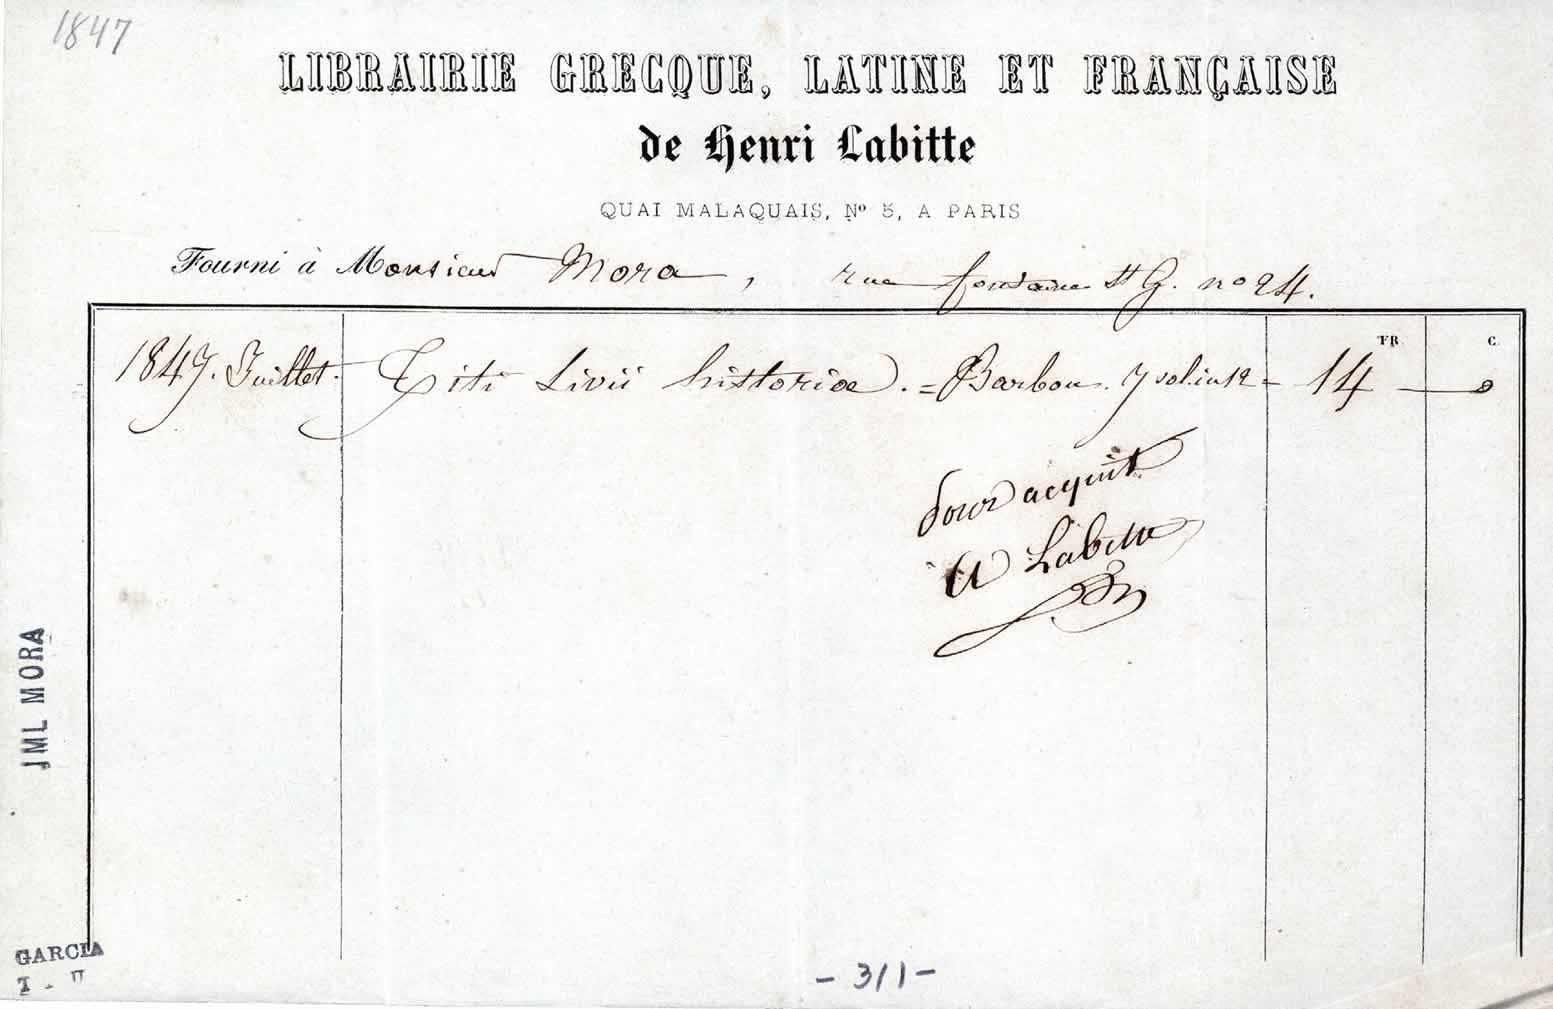 1847
LIBRAIRIE GRECQUE, LATINE ET FRANÇAISE
de Henri Labitte
QUAI MALAQUAIS, Nº 5, A PARIS
Fourni à Monsieur Mora, rue fontaine St G. nº 24.
FR. C.
1847. Juillet. Titi Livii historiae. = Barbou. 7 vol. in 12 - 14 — 0
Pour acquit
A Labitte
JML MORA
GARCIA
- 3/1 -